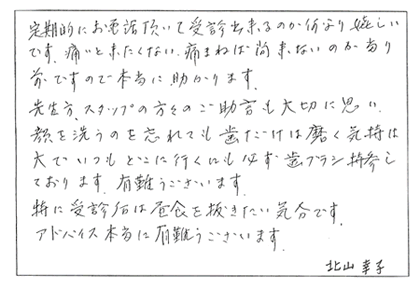 定期的にお電話頂いて受診出来るのが何より嬉しい
です。痛いと来たくない、痛まねば尚来ないのが当り
前ですので本当に助かります。
先生方、スタッフの方々のご助言も大切に思い
顔を洗うのを忘れても歯だけは磨く気持は
大でいつもどこに行くにも必ず歯ブラシ持参し
ております。有難うございます。
特に受診前は昼食を抜きたい気分です。
アドバイス本当に有難うございます。
北山 幸子